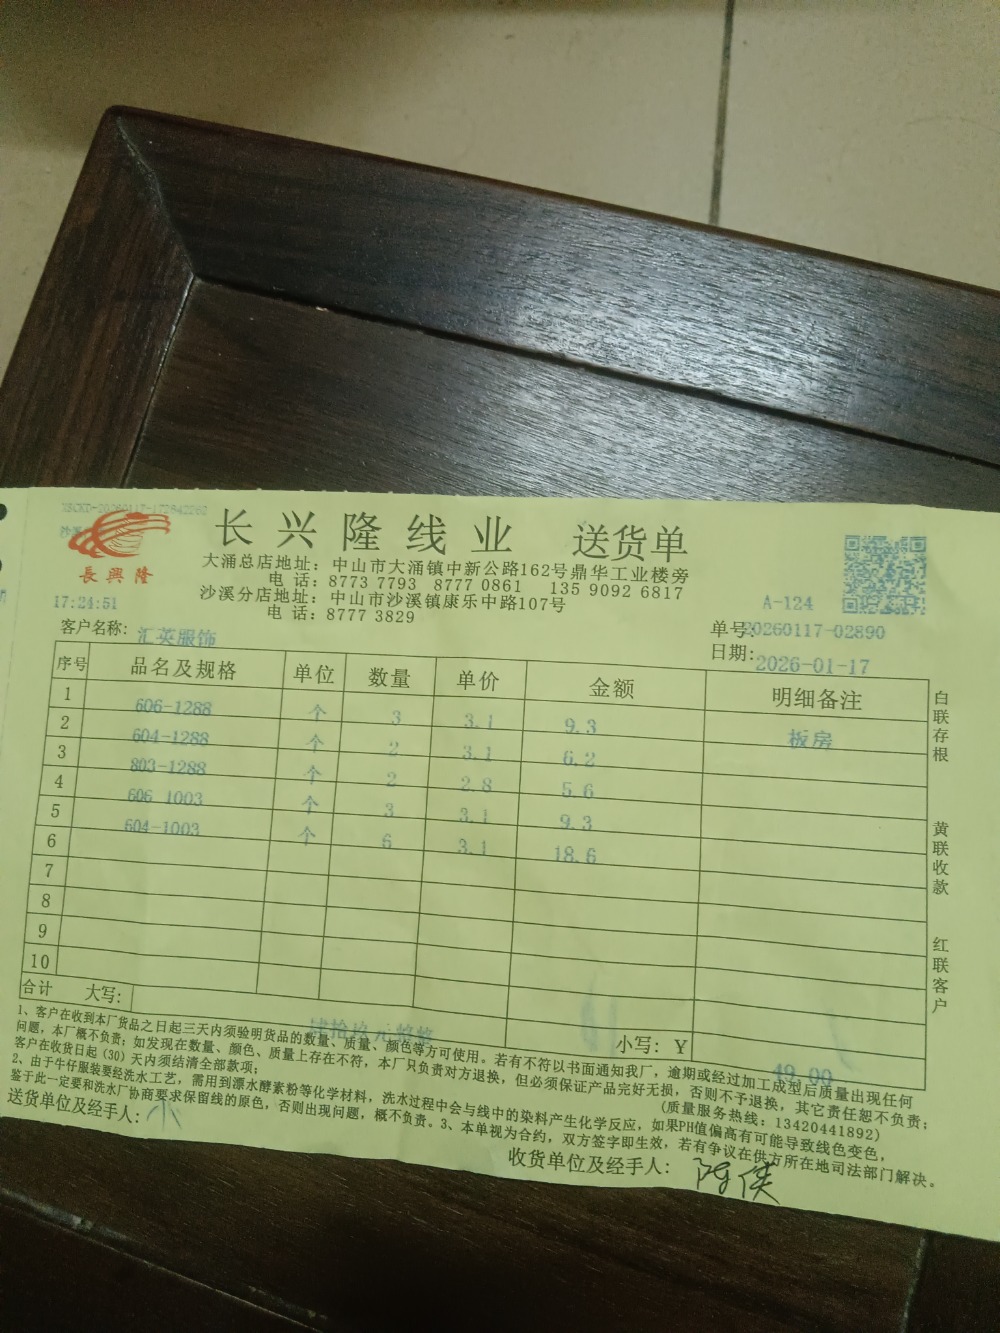 XSCKD-20260117-172642260
長興隆
长兴隆线业 送货单
大涌总店地址：中山市大涌镇中新公路162号鼎华工业楼旁
电 话：8773 7793 8777 0861 135 9092 6817
沙溪分店地址：中山市沙溪镇康乐中路107号
电 话：8777 3829
17:24:51
A-124
客户名称：汇英服饰
单号：20260117-02890
日期：2026-01-17
序号 品名及规格 单位 数量 单价 金额 明细备注
1 606-1288 个 3 3.1 9.3 板房
2 604-1288 个 2 3.1 6.2
3 803-1288 个 2 2.8 5.6
4 606 1003 个 3 3.1 9.3
5 604-1003 个 6 3.1 18.6
6
7
8
9
10
合计 大写： 肆拾玖元整 小写：Y 49.00
白联存根
黄联收款
红联客户
1、客户在收到本厂货品之日起三天内须验明货品的数量、质量、颜色等方可使用。若有不符以书面通知我厂，逾期或经过加工成型后质量出现任何
问题，本厂概不负责；如发现在数量、颜色、质量上存在不符，本厂只负责对方退换，但必须保证产品完好无损，否则不予退换，其它责任恕不负责；
客户在收货日起（30）天内须结清全部款项；
(质量服务热线：13420441892)
2、由于牛仔服装要经洗水工艺，需用到漂水酵素粉等化学材料，洗水过程中会与线中的染料产生化学反应，如果PH值偏高有可能导致线色变色，
鉴于此一定要和洗水厂协商要求保留线的原色，否则出现问题，概不负责。3、本单视为合约，双方签字即生效，若有争议在供方所在地司法部门解决。
送货单位及经手人：
收货单位及经手人：